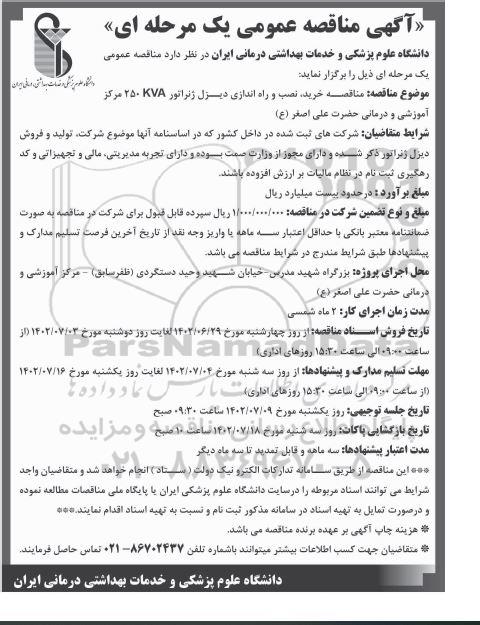 «آگهی مناقصه عمومی یک مرحله ای»
دانشگاه علوم پزشکی و خدمات بهداشتی درمانی ایران
دانشگاه علوم پزشکی و خدمات بهداشتی درمانی ایران در نظر دارد مناقصه عمومی
یک مرحله ای ذیل را برگزار نماید:
موضوع مناقصه: مناقصه خرید، نصب و راه اندازی دیزل ژنراتور ۲۵۰ KVA مرکز
آموزشی و درمانی حضرت علی اصغر (ع)
شرایط متقاضیان: شرکت های ثبت شده در داخل کشور که در اساسنامه آنها موضوع شرکت، تولید و فروش
دیزل ژنراتور ذکر شده و دارای مجوز از وزارت صمت بوده و دارای تجربه مدیریتی، مالی و تجهیزاتی و کد
رهگیری ثبت نام در نظام مالیات بر ارزش افزوده باشند.
مبلغ برآورد : درحدود بیست میلیارد ریال
مبلغ و نوع تضمین شرکت در مناقصه: ۱/۰۰۰/۰۰۰/۰۰۰ ریال سپرده قابل قبول برای شرکت در مناقصه به صورت
ضمانتنامه معتبر بانکی با حداقل اعتبار سه ماهه یا واریز وجه نقد از تاریخ آخرین فرصت تسلیم مدارک و
پیشنهادها طبق شرایط مندرج در شرایط مناقصه می باشد.
محل اجرای پروژه: بزرگراه شهید مدرس-خیابان شهید وحید دستگردی (ظفرسابق) - مرکز آموزشی و
درمانی حضرت علی اصغر (ع)
مدت زمان اجرای کار: ۲ ماه شمسی
تاریخ فروش اسناد مناقصه: از روز چهارشنبه مورخ ۱۴۰۲/۰۶/۲۹ لغایت روز دوشنبه مورخ ۱۴۰۲/۰۷/۰۳ (از
ساعت ۰۹:۰۰ الی ساعت ۱۵:۳۰ روزهای اداری)
مهلت تسلیم مدارک و پیشنهادها: از روز سه شنبه مورخ ۱۴۰۲/۰۷/۰۴ لغایت روز یکشنبه مورخ ۱۴۰۲/۰۷/۱۶
(از ساعت ۰۹:۰۰ الی ساعت ۱۵:۳۰ روزهای اداری)
تاریخ جلسه توجیهی: روز یکشنبه مورخ ۱۴۰۲/۰۷/۰۹ ساعت ۰۹:۳۰ صبح
تاریخ بازگشایی پاکات: روز سه شنبه مورخ ۱۴۰۲/۰۷/۱۸ ساعت ۱۰ صبح
مدت اعتبار پیشنهادها: سه ماهه و قابل تمدید تا سه ماه دیگر
*** این مناقصه از طریق سامانه تدارکات الکترونیک دولت (ستاد) انجام خواهد شد و متقاضیان واجد
شرایط می توانند اسناد مربوطه را درسایت دانشگاه علوم پزشکی ایران یا پایگاه ملی مناقصات مطالعه نموده
و درصورت تمایل به تهیه اسناد در سامانه مذکور ثبت نام و نسبت به تهیه اسناد اقدام نمایند.***
* هزینه چاپ آگهی بر عهده برنده مناقصه می باشد.
* متقاضیان جهت کسب اطلاعات بیشتر میتوانند باشماره تلفن ۸۶۷۰۲۴۳۷-۰۲۱ تماس حاصل فرمایند.
دانشگاه علوم پزشکی و خدمات بهداشتی درمانی ایران
ParsNamadData